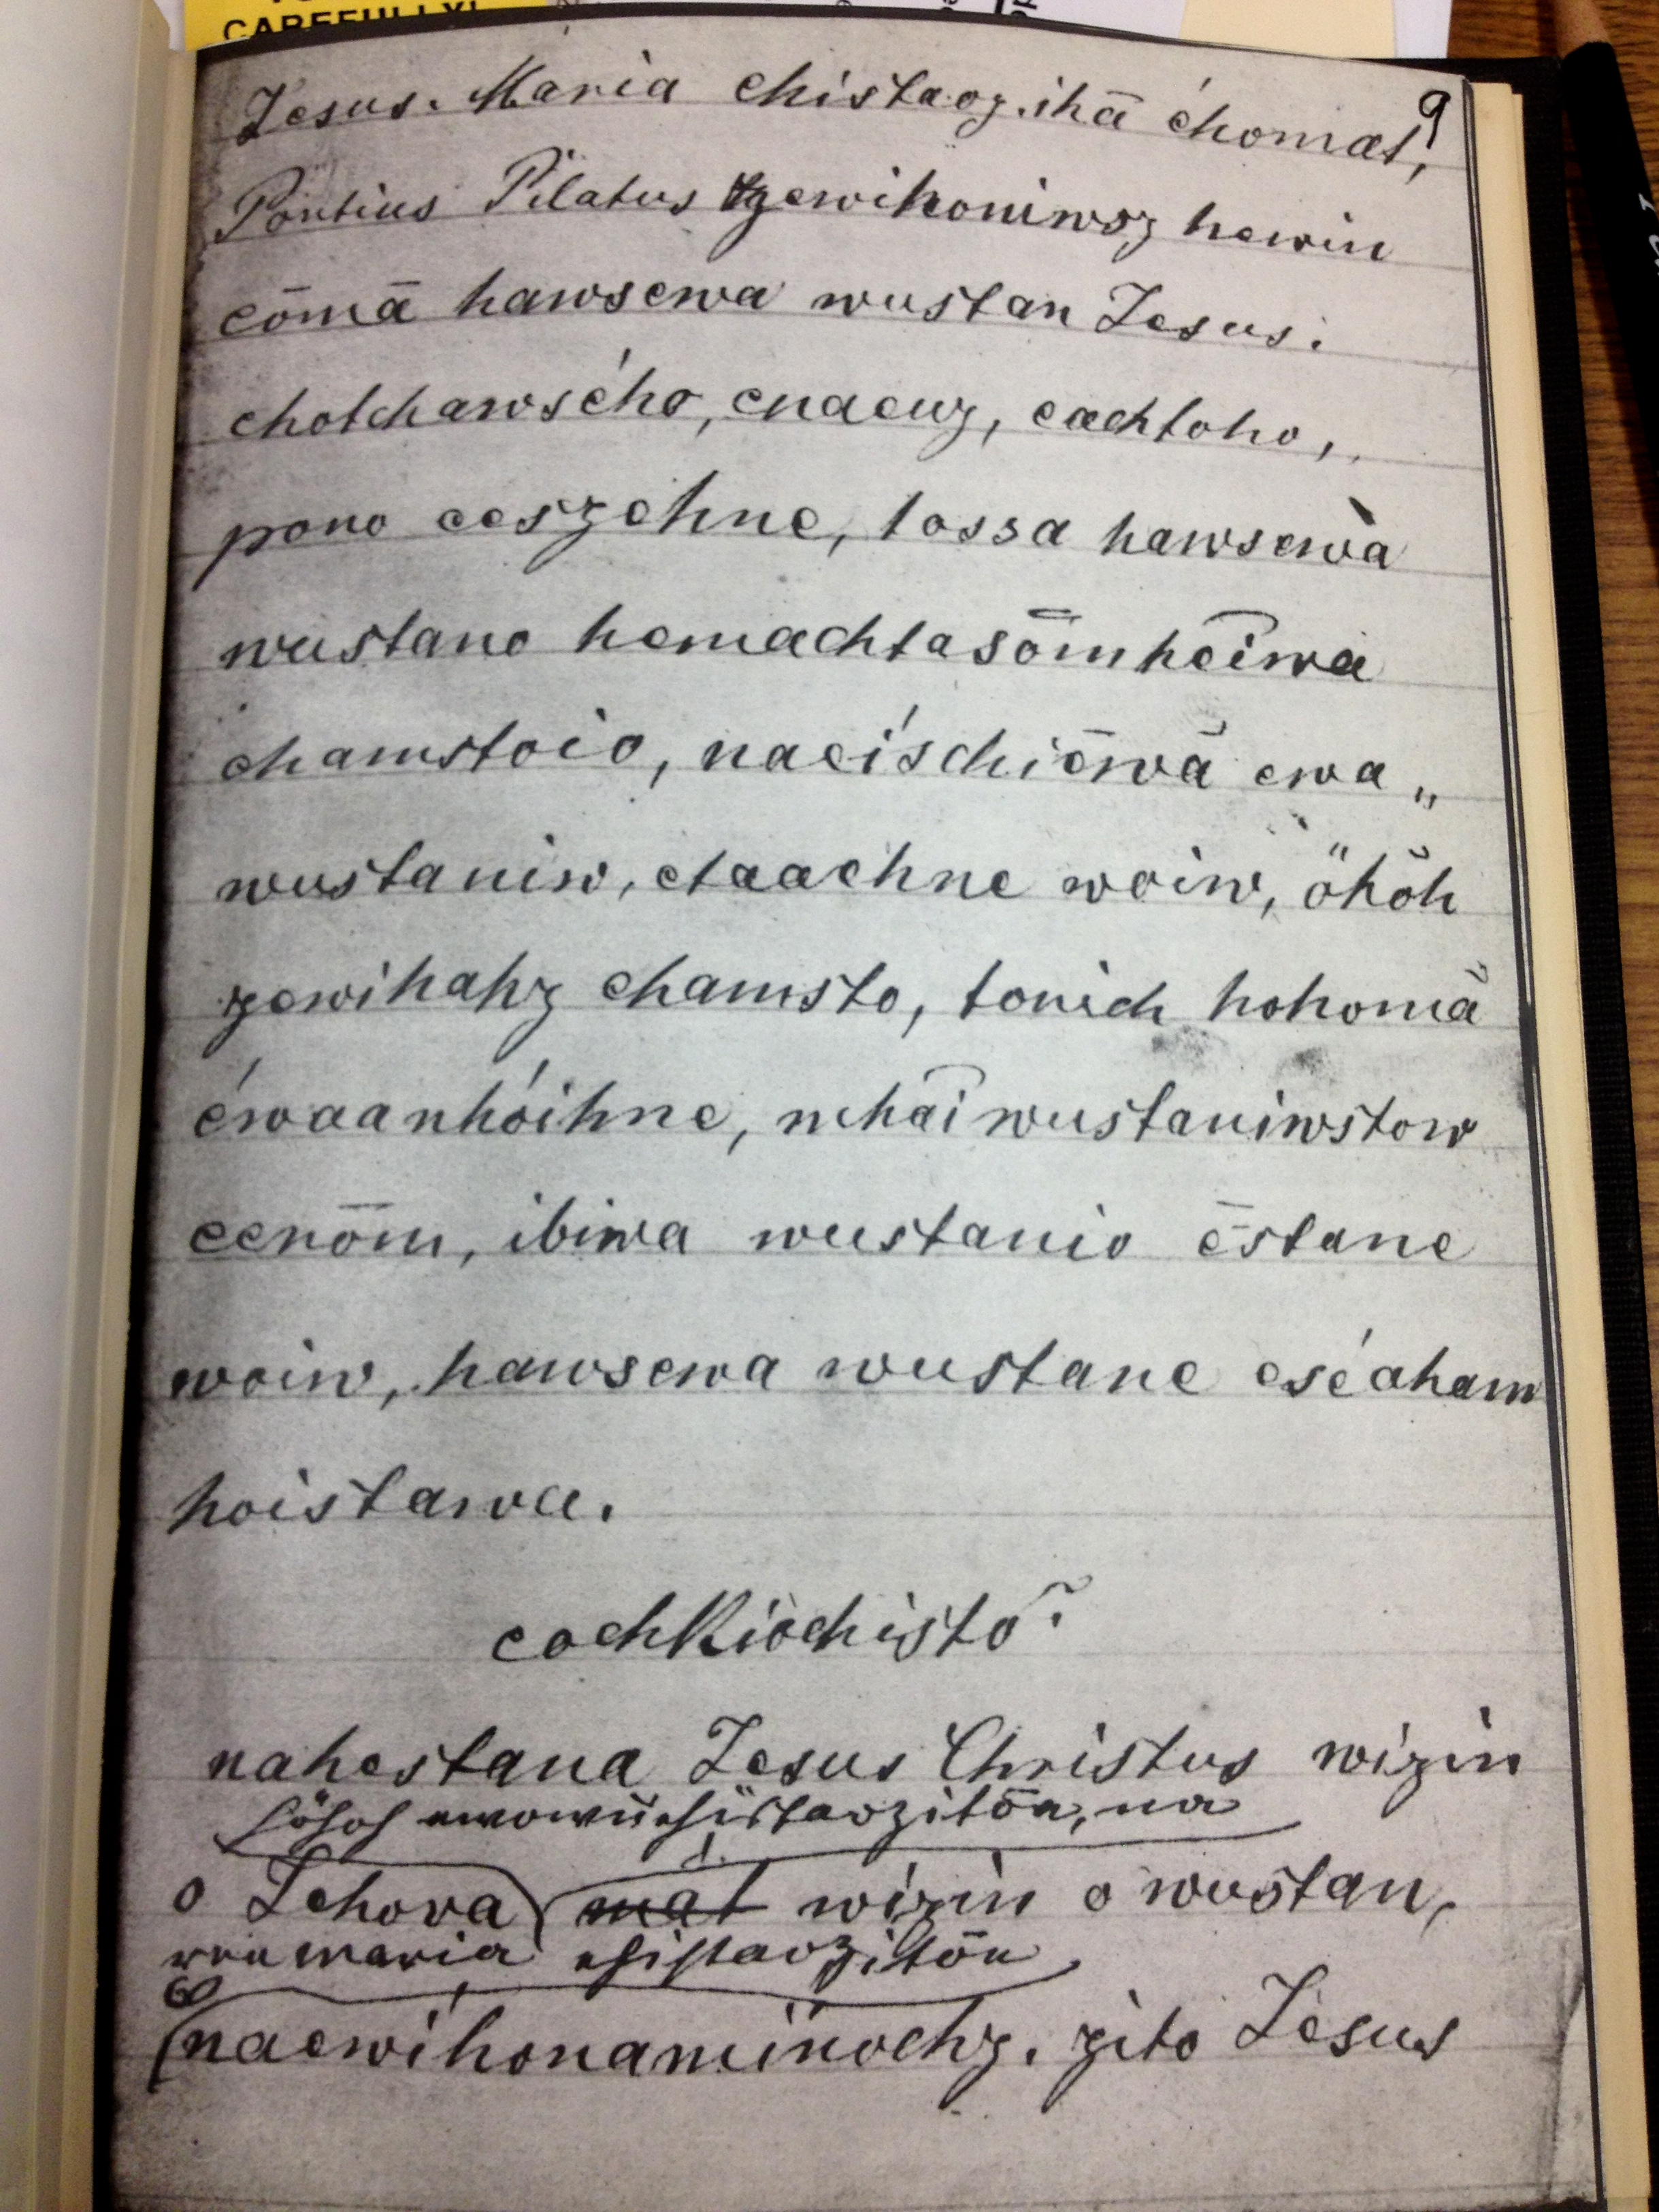 CAREFULLY!
9
Jesus. Maria chistaoz. ihā éhomat,
Pontius Pilatus zewihoniwsz hewin
eōmā hawsewa wustan Jesus.
ehotchawsého, enaeuz, eachtoho,
pono eeszehne, tossa hawsewa
wustano hemachtasōmhēiwa
ehamstoio, naeíschiēwā ewa„
wustaniw, etaaehne woiw, öhöh
zewihahz ehamsto, tonich hohomā
éwaanhóihne, nehāiwustaniwstow
eenōm, ibiwa wustanio ēstane
woiw, hawsewa wustane eséaham
hoistawa.
eochkiochisto.
nahestana Jesus Christus wizin
o Jehova mat wizin o wustan,
naewihonaminochz. zito Jesus